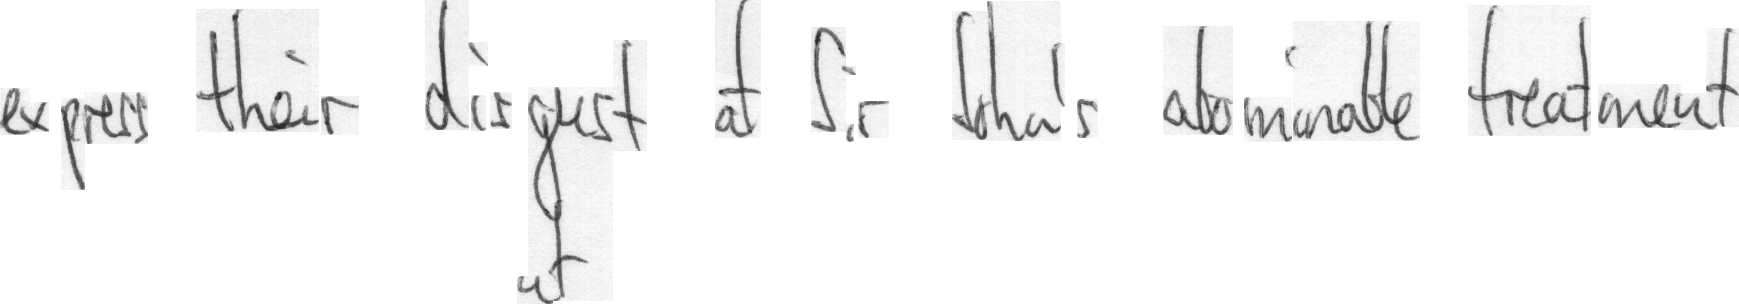 express their disgust at Sir John's abominable treatment